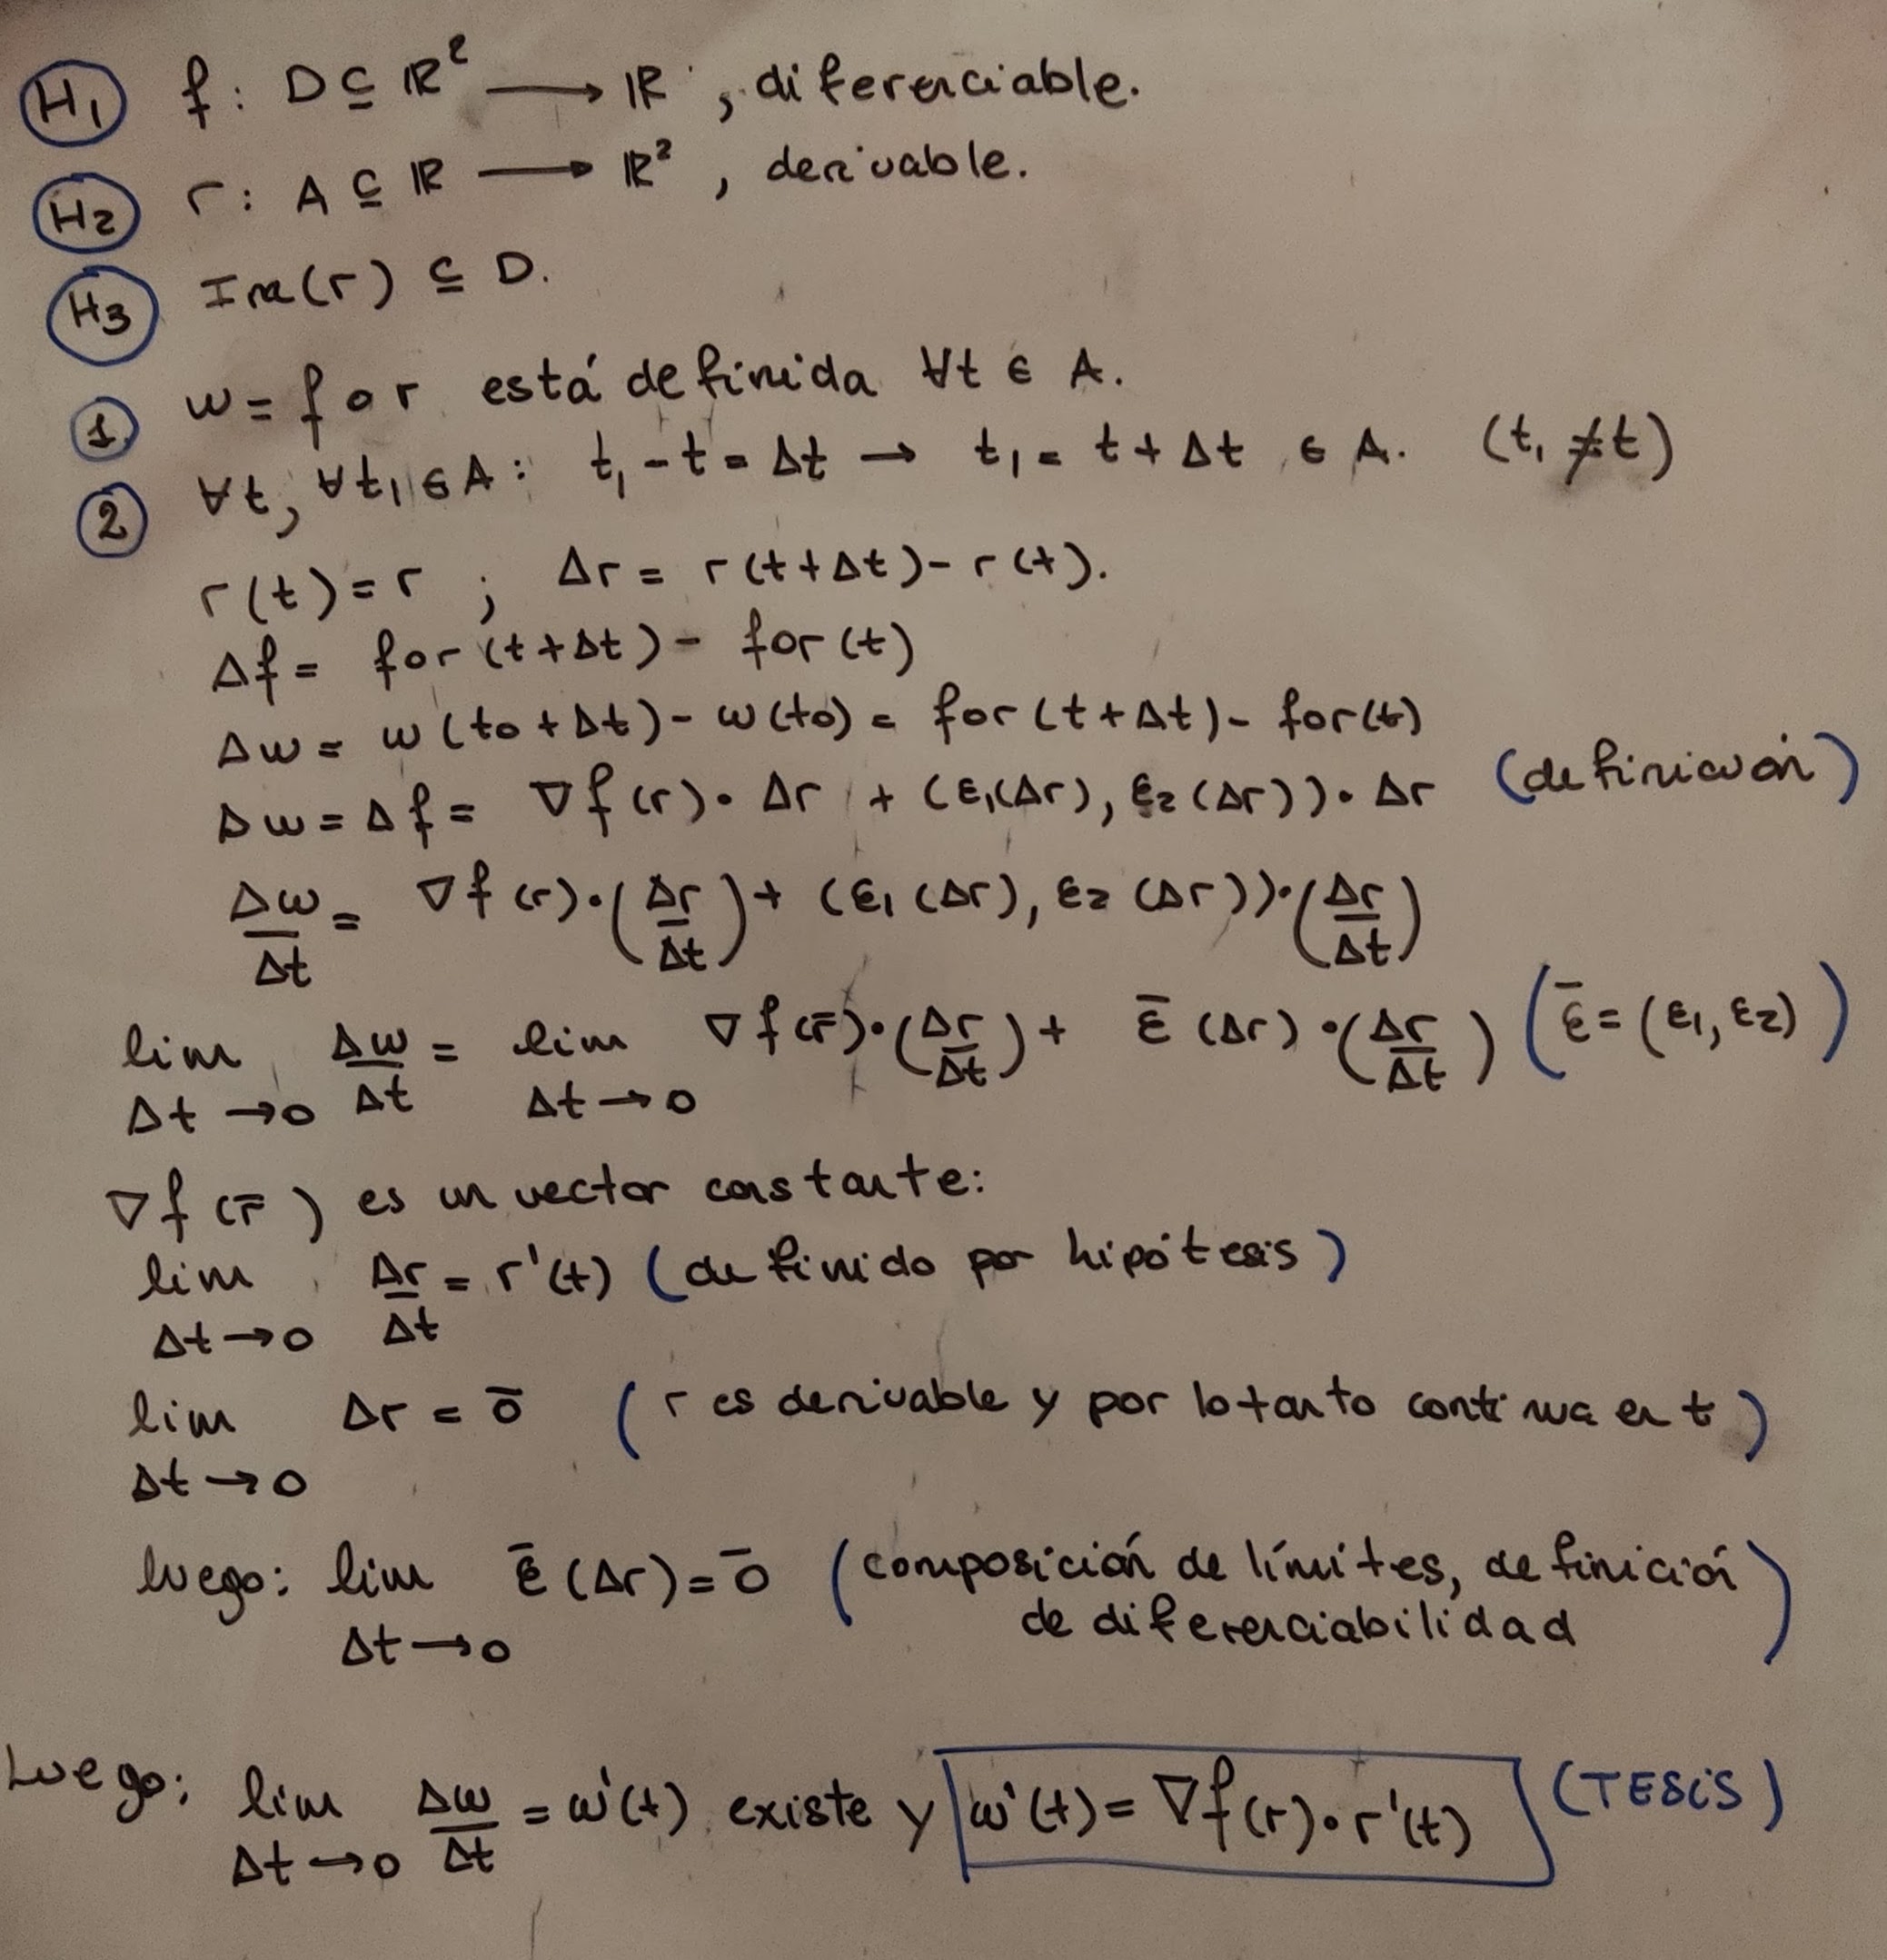 H1 f: D ⊆ ℝ² ⟶ ℝ , diferenciable.
H2 r: A ⊆ ℝ ⟶ ℝ² , derivable.
H3 Im(r) ⊆ D.
1 w = f o r está definida ∀t ∈ A.
2 ∀t, ∀t₁ ∈ A: t₁ - t = Δt → t₁ = t + Δt ∈ A. (t₁ ≠ t)
r(t) = r ; Δr = r(t+Δt) - r(t).
Δf = for(t+Δt) - for(t)
Δw = w(to+Δt) - w(to) = for(t+Δt) - for(t)
Δw = Δf = ∇f(r)·Δr + (ε₁(Δr), ε₂(Δr))·Δr (definición)
Δw/Δt = ∇f(r)·(Δr/Δt) + (ε₁(Δr), ε₂(Δr))·(Δr/Δt)
lim Δt→0 Δw/Δt = lim Δt→0 ∇f(r̄)·(Δr/Δt) + ε̄(Δr)·(Δr/Δt) (ε̄ = (ε₁, ε₂))
∇f(r̄) es un vector constante:
lim Δt→0 Δr/Δt = r'(t) (definido por hipótesis)
lim Δt→0 Δr = ō (r es derivable y por lo tanto continua en t)
luego: lim Δt→0 ε̄(Δr) = ō (composición de límites, definición
de diferenciabilidad)
Luego: lim Δt→0 Δw/Δt = w'(t) existe y w'(t) = ∇f(r)·r'(t) (TESIS)